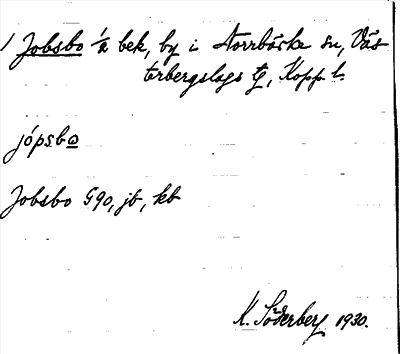 1 Jobsbo ½ bek, by i Norrbärke sn, Väs
terbergslags tg, Kopp l.
jópsbo
Jobsbo G90, jb, kb
K. Söderberg 1930.